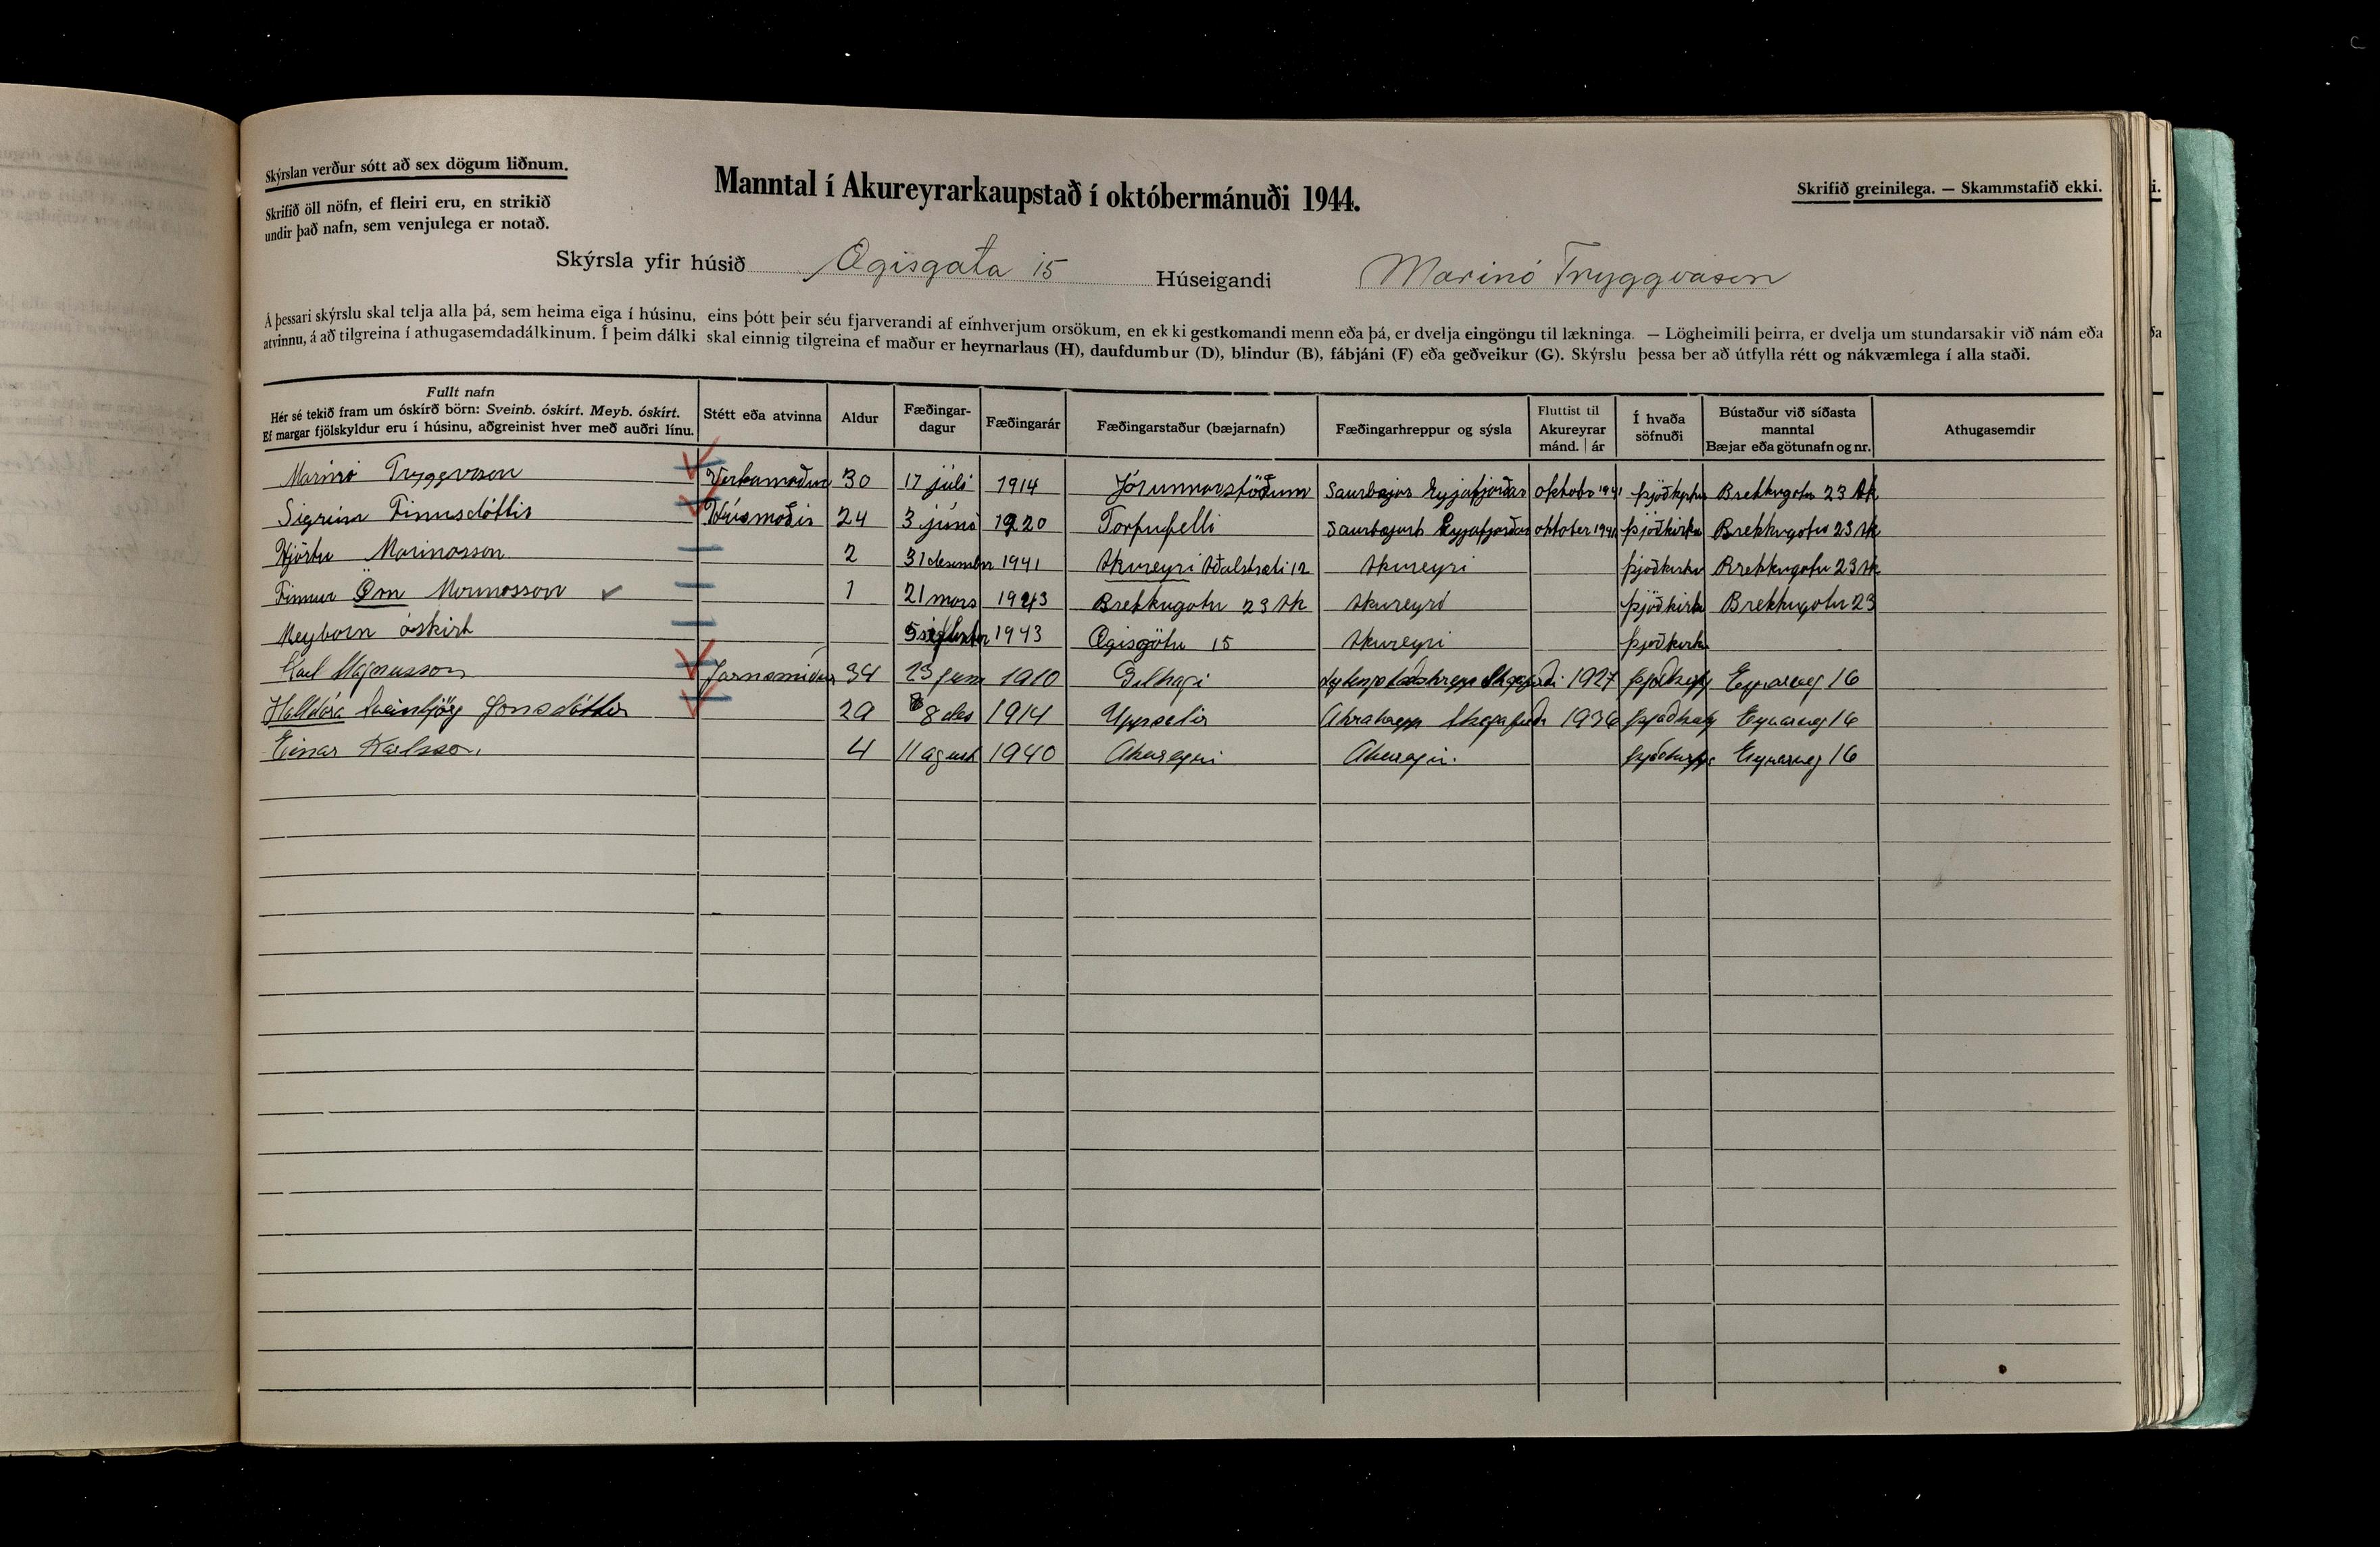 Skýrslan verður sótt að sex dögum liðnum.
Skrifið öll nöfn, ef fleiri eru, en strikið
undir það nafn, sem venjulega er notað.
Manntal í Akureyrarkaupstað í októbermánuði 1944.
Skrifið greinilega. — Skammstafið ekki.
Skýrsla yfir húsið Ægisgata 15 Húseigandi Marinó Tryggvason
Á þessari skýrslu skal telja alla þá, sem heima eiga í húsinu, eins þótt þeir séu fjarverandi af einhverjum orsökum, en ekki gestkomandi menn eða þá, er dvelja eingöngu til lækninga. — Lögheimili þeirra, er dvelja um stundarsakir við nám eða
atvinnu, á að tilgreina í athugasemdadálkinum. Í þeim dálki skal einnig tilgreina ef maður er heyrnarlaus (H), daufdumbur (D), blindur (B), fábjáni (F) eða geðveikur (G). Skýrslu þessa ber að útfylla rétt og nákvæmlega í alla staði.
Fullt nafn
Hér sé tekið fram um óskírð börn: Sveinb. óskírt. Meyb. óskírt.
Ef margar fjölskyldur eru í húsinu, aðgreinist hver með auðri línu.
Stétt eða atvinna
Aldur
Fæðingar-
dagur
Fæðingarár
Fæðingarstaður (bæjarnafn)
Fæðingarhreppur og sýsla
Fluttist til
Akureyrar
mánd. | ár
Í hvaða
söfnuði
Bústaður við síðasta
manntal
Bæjar eða götunafn og nr.
Athugasemdir
Marinó Tryggvason Verkamaður 30 17 júlí 1914 Jórunnarstöðum Saurbæjar Eyjafjarðar oktober 1941 þjóðkirkju Brekkugötu 23 Ak
Sigrún Finnsdóttir Húsmóðir 24 3 júní 1920 Torfufelli Saurbæjarh Eyjafjarðar oktober 1941 þjóðkirkju Brekkugötu 23 Ak
Hjörtur Marinosson 2 31 desember 1941 Akureyri Aðalstræti 12 Akureyri þjóðkirkju Brekkugötu 23 Ak
Finnur Örn Marinosson 1 21 mars 1943 Brekkugötu 23 Ak Akureyri þjóðkirkju Brekkugötu 23
Meybarn óskirt 5 september 1943 Ægisgötu 15 Akureyri þjóðkirkju
Karl Magnusson Járnsmiður 34 23 1910 Gilhagi Lytingsstaðahrepp Skagafirði 1927 Eyrarveg 16
Halldóra Sveinbjörg Jónsdóttir 29 8 des 1914 Uppsalir Akrahrepp Skagafirði 1936 Eyrarveg 16
Einar Karlsson. 4 11 agust 1940 Akureyri Akureyri. Eyrarveg 16